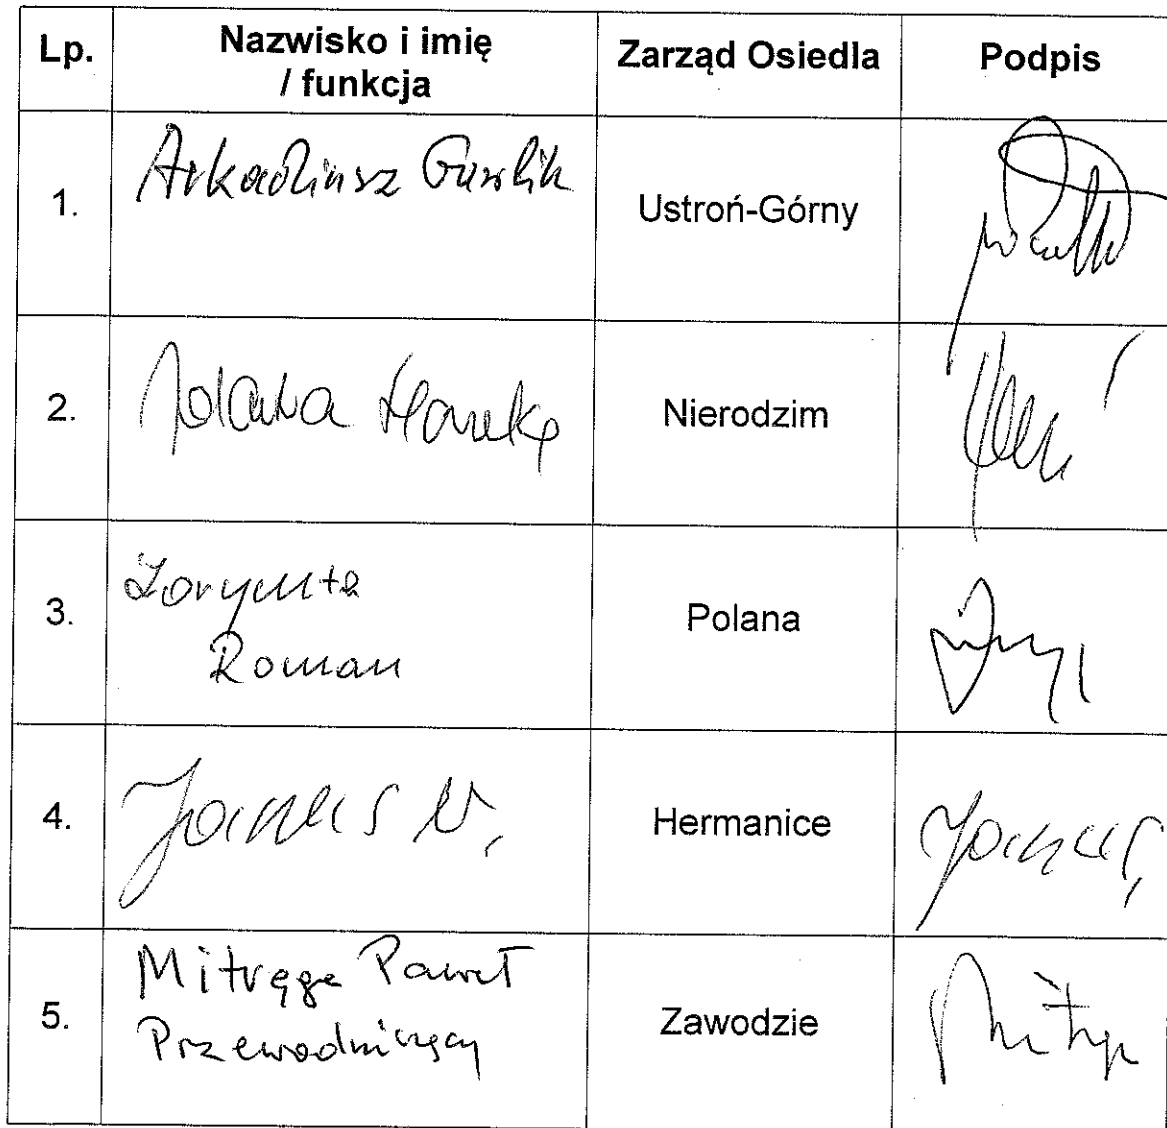 Lp. Nazwisko i imię / funkcja Zarząd Osiedla Podpis
1. Arkadiusz Gawlik Ustroń-Górny
2. Jolanta Hareża Nierodzim
3. Zorychta
Roman Polana
4. Janus W. Hermanice Janus
5. Mitręga Paweł
Przewodniczący Zawodzie